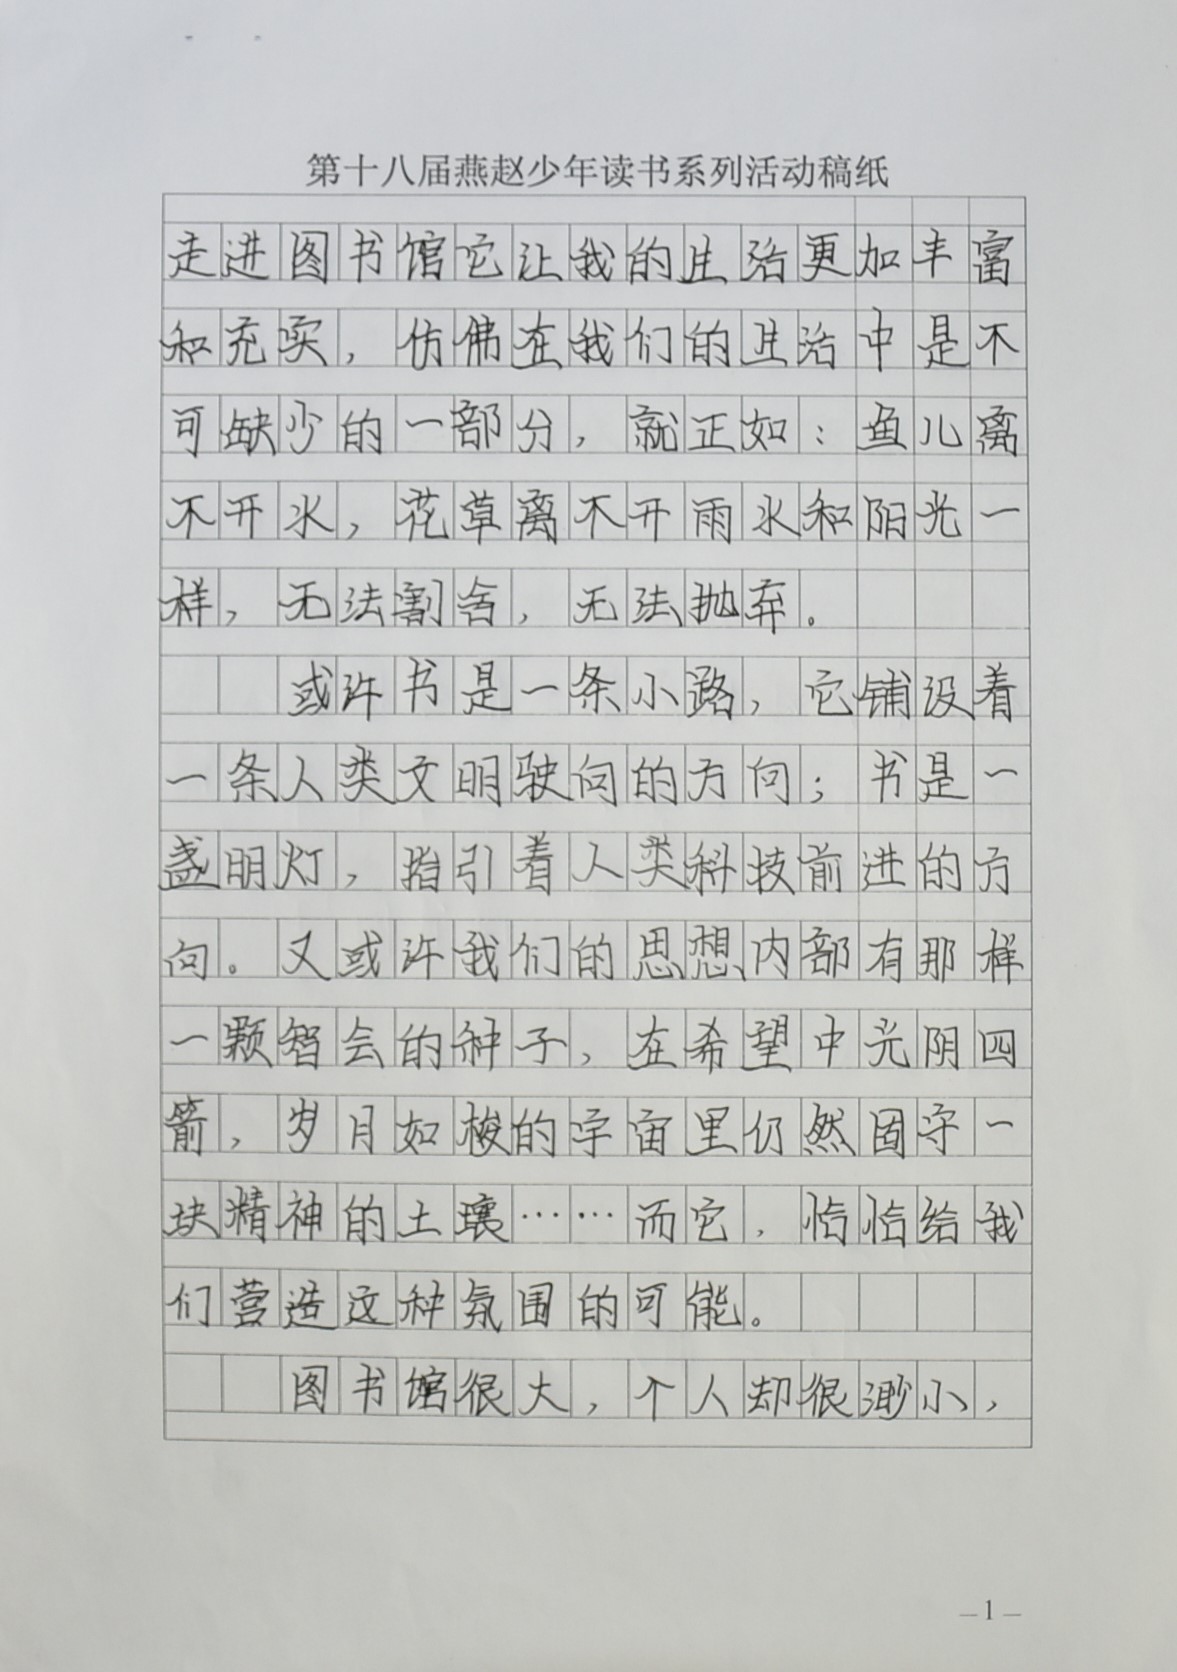 第十八届燕赵少年读书系列活动稿纸
走进图书馆它让我的生活更加丰富
和充实，仿佛在我们的生活中是不
可缺少的一部分，就正如：鱼儿离
不开水，花草离不开雨水和阳光一
样，无法割舍，无法抛弃。
或许书是一条小路，它铺设着
一条人类文明驶向的方向；书是一
盏明灯，指引着人类科技前进的方
向。又或许我们的思想内部有那样
一颗智会的种子，在希望中光阴四
箭，岁月如梭的宇宙里仍然固守一
块精神的土壤……而它，恰恰给我
们营造这种氛围的可能。
图书馆很大，个人却很渺小，
—1—